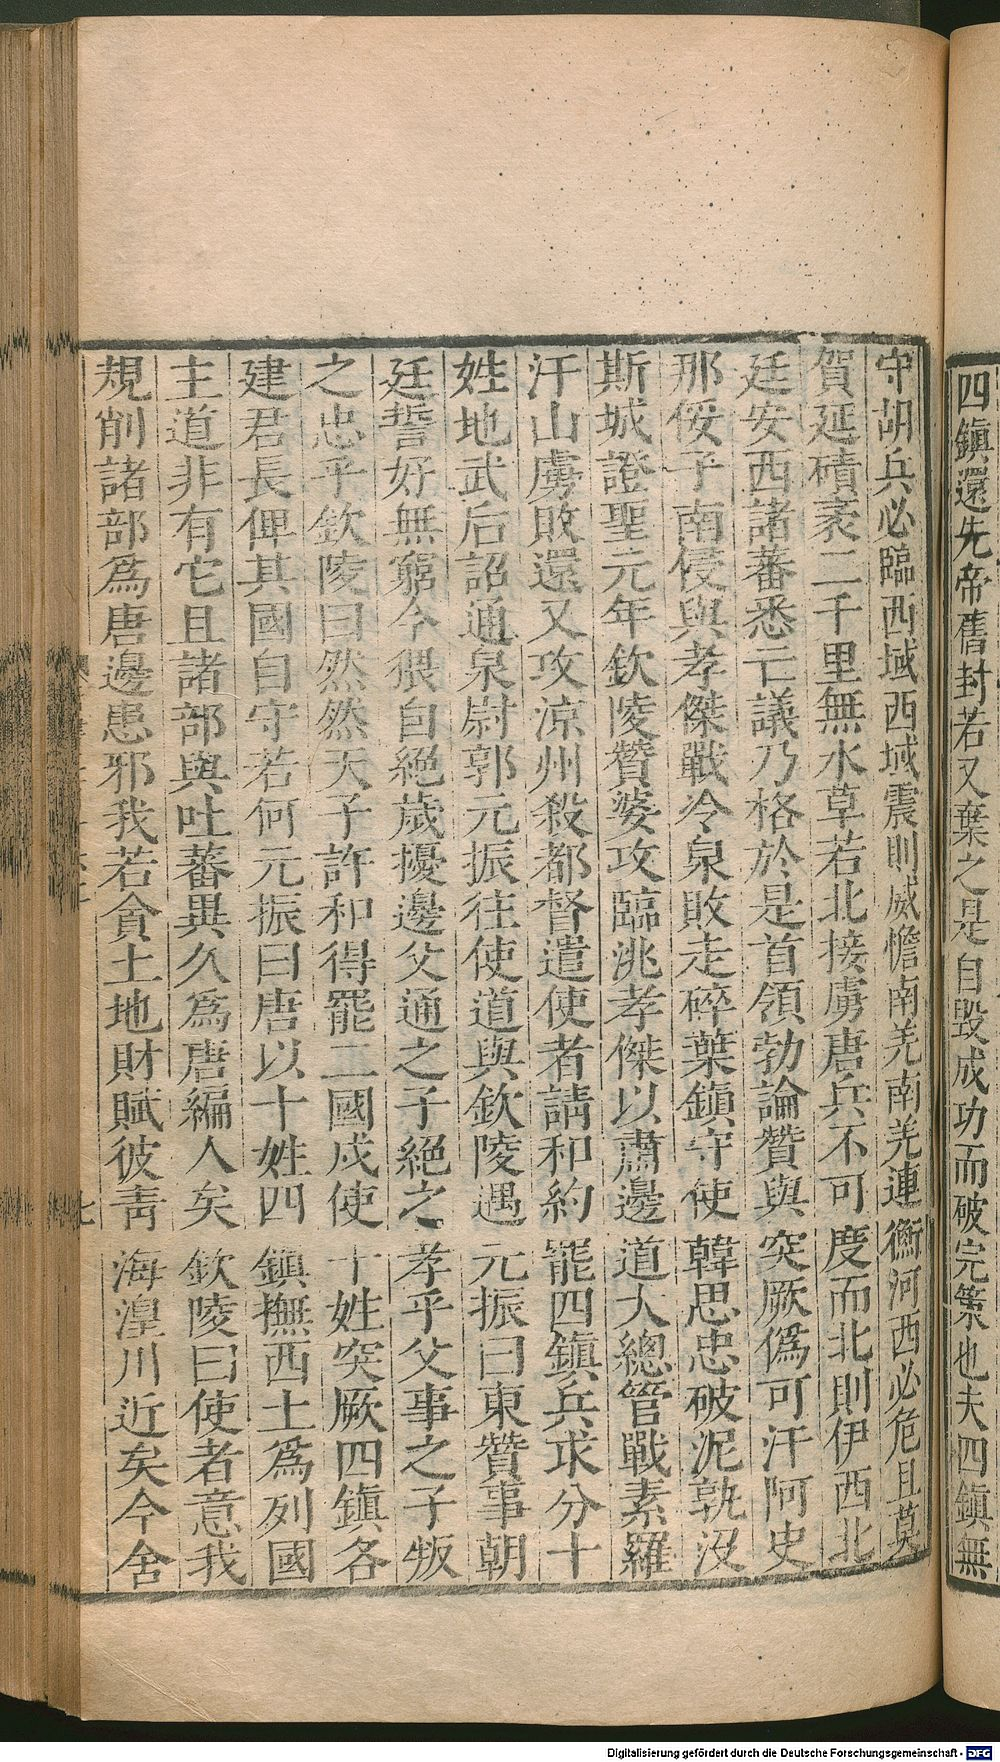 四鎮還先帝舊封若又棄之是自毀成功而破完策也夫四鎮無
守胡兵必臨西域西域震則威憺南羌南羌連衡河西必危且莫
賀延磧袤二千里無水草若北接虜唐兵不可度而北則伊西北
廷安西諸蕃悉亡議乃格於是首領勃論贊與突厥偽可汗阿史
那俀子南侵與孝傑戰冷泉敗走碎葉鎮守使韓思忠破泥孰沒
斯城證聖元年欽陵贊婆攻臨洮孝傑以肅邊道大總管戰素羅
汗山虜敗還又攻涼州殺都督遣使者請和約罷四鎮兵求分十
姓地武后詔通泉尉郭元振往使道與欽陵遇元振曰東贊事朝
廷誓好無窮今猥自絕歲擾邊父通之子絕之孝乎父事之子叛
之忠乎欽陵曰然然天子許和得罷二國戍使十姓突厥四鎮各
建君長俾其國自守若何元振曰唐以十姓四鎮撫西土為列國
主道非有它且諸部與吐蕃異久為唐編人矣欽陵曰使者意我
規削諸部為唐邊患邪我若貪土地財賦彼青海湟川近矣今舍
七
Digitalisierung gefördert durch die Deutsche Forschungsgemeinschaft - DFG